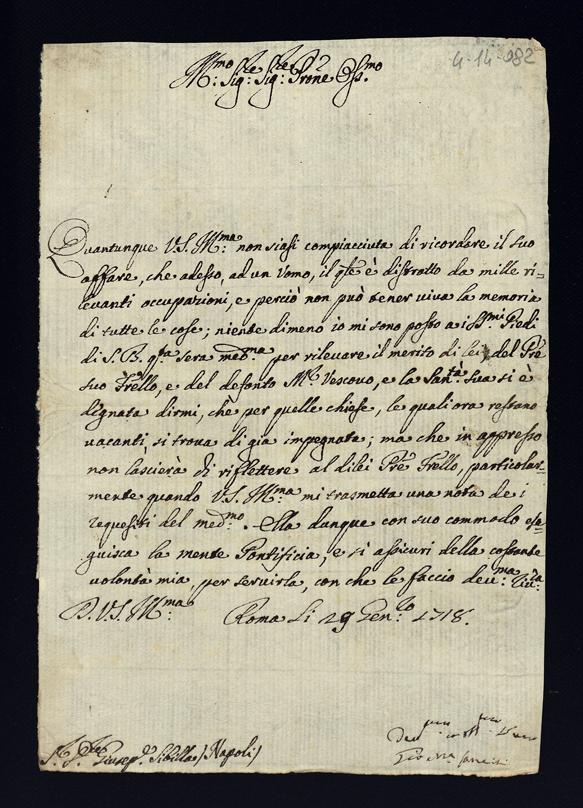 Ill:mo Sig:re Sig:re Prone Oss.mo
4-14-982
Quantunque V.S. Ill:ma non siasi compiacciuta di ricordare il suo
affare, che adesso, ad un Uomo, il qle è distratto da mille ri=
levanti occupazioni, e perciò non può tener viva la memoria
di tutte le cose; niente dimeno io mi sono posto a i SS.mi Piedi
di S. B. qta sera med:ma per rilevare il merito di lei, e del Pre
suo Frello, e del defonto M:r Vescovo, e la San:tà Sua si è
degnata dirmi, chè per quelle chiese, le quali ora restano
vacanti, si trova di già impegnata; ma che in appresso
non lascierà di riflettere al di lei Pre Frello, particolar=
mente quando V.S. Ill:ma mi trasmetta una nota de i
requesiti del med:mo. Ella dunque con suo commodo ese=
guisca la mente Pontificia, e si assicuri della costante
volontà mia, per servirla, con che le faccio deu:ma riu:za
D. V.S. Ill:ma Roma Li 29 Gen:ro 1718.
Giusep:e Sibilla (Napoli)